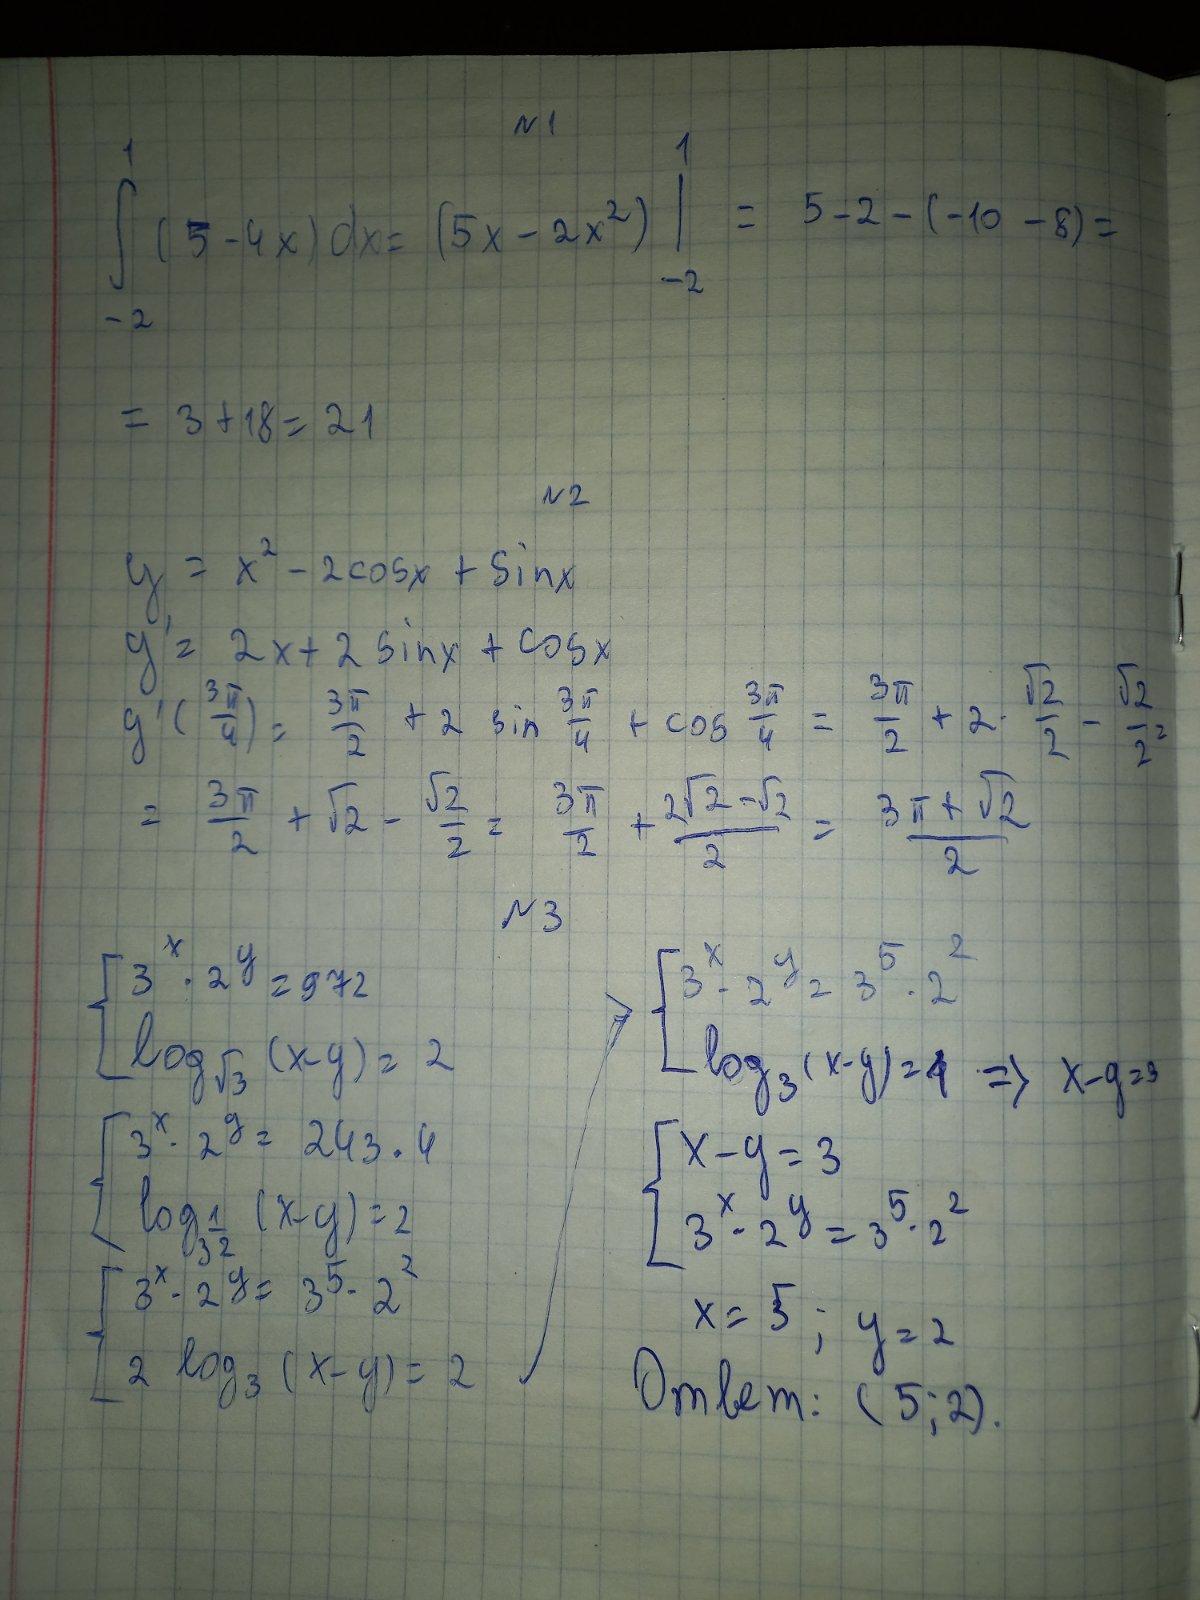 N1
∫₋₂¹ (5-4x)dx = (5x-2x²)|₋₂¹ = 5-2-(-10-8)=
= 3+18=21
N2
y = x²-2cosx+sinx
y' = 2x+2sinx+cosx
y'(3π/4) = 3π/2 + 2 sin 3π/4 + cos 3π/4 = 3π/2 + 2·√2/2 - √2/2 =
= 3π/2 + √2 - √2/2 = 3π/2 + (2√2-√2)/2 = (3π+√2)/2
N3
{ 3ˣ·2ʸ=972
log_√3 (x-y)=2
{ 3ˣ·2ʸ=243·4
log_3^(1/2) (x-y)=2
{ 3ˣ·2ʸ=3⁵·2²
2 log₃(x-y)=2
{ 3ˣ·2ʸ=3⁵·2²
log₃(x-y)=1 => x-y=3
{ x-y=3
3ˣ·2ʸ=3⁵·2²
x=5; y=2
Ответ: (5;2).